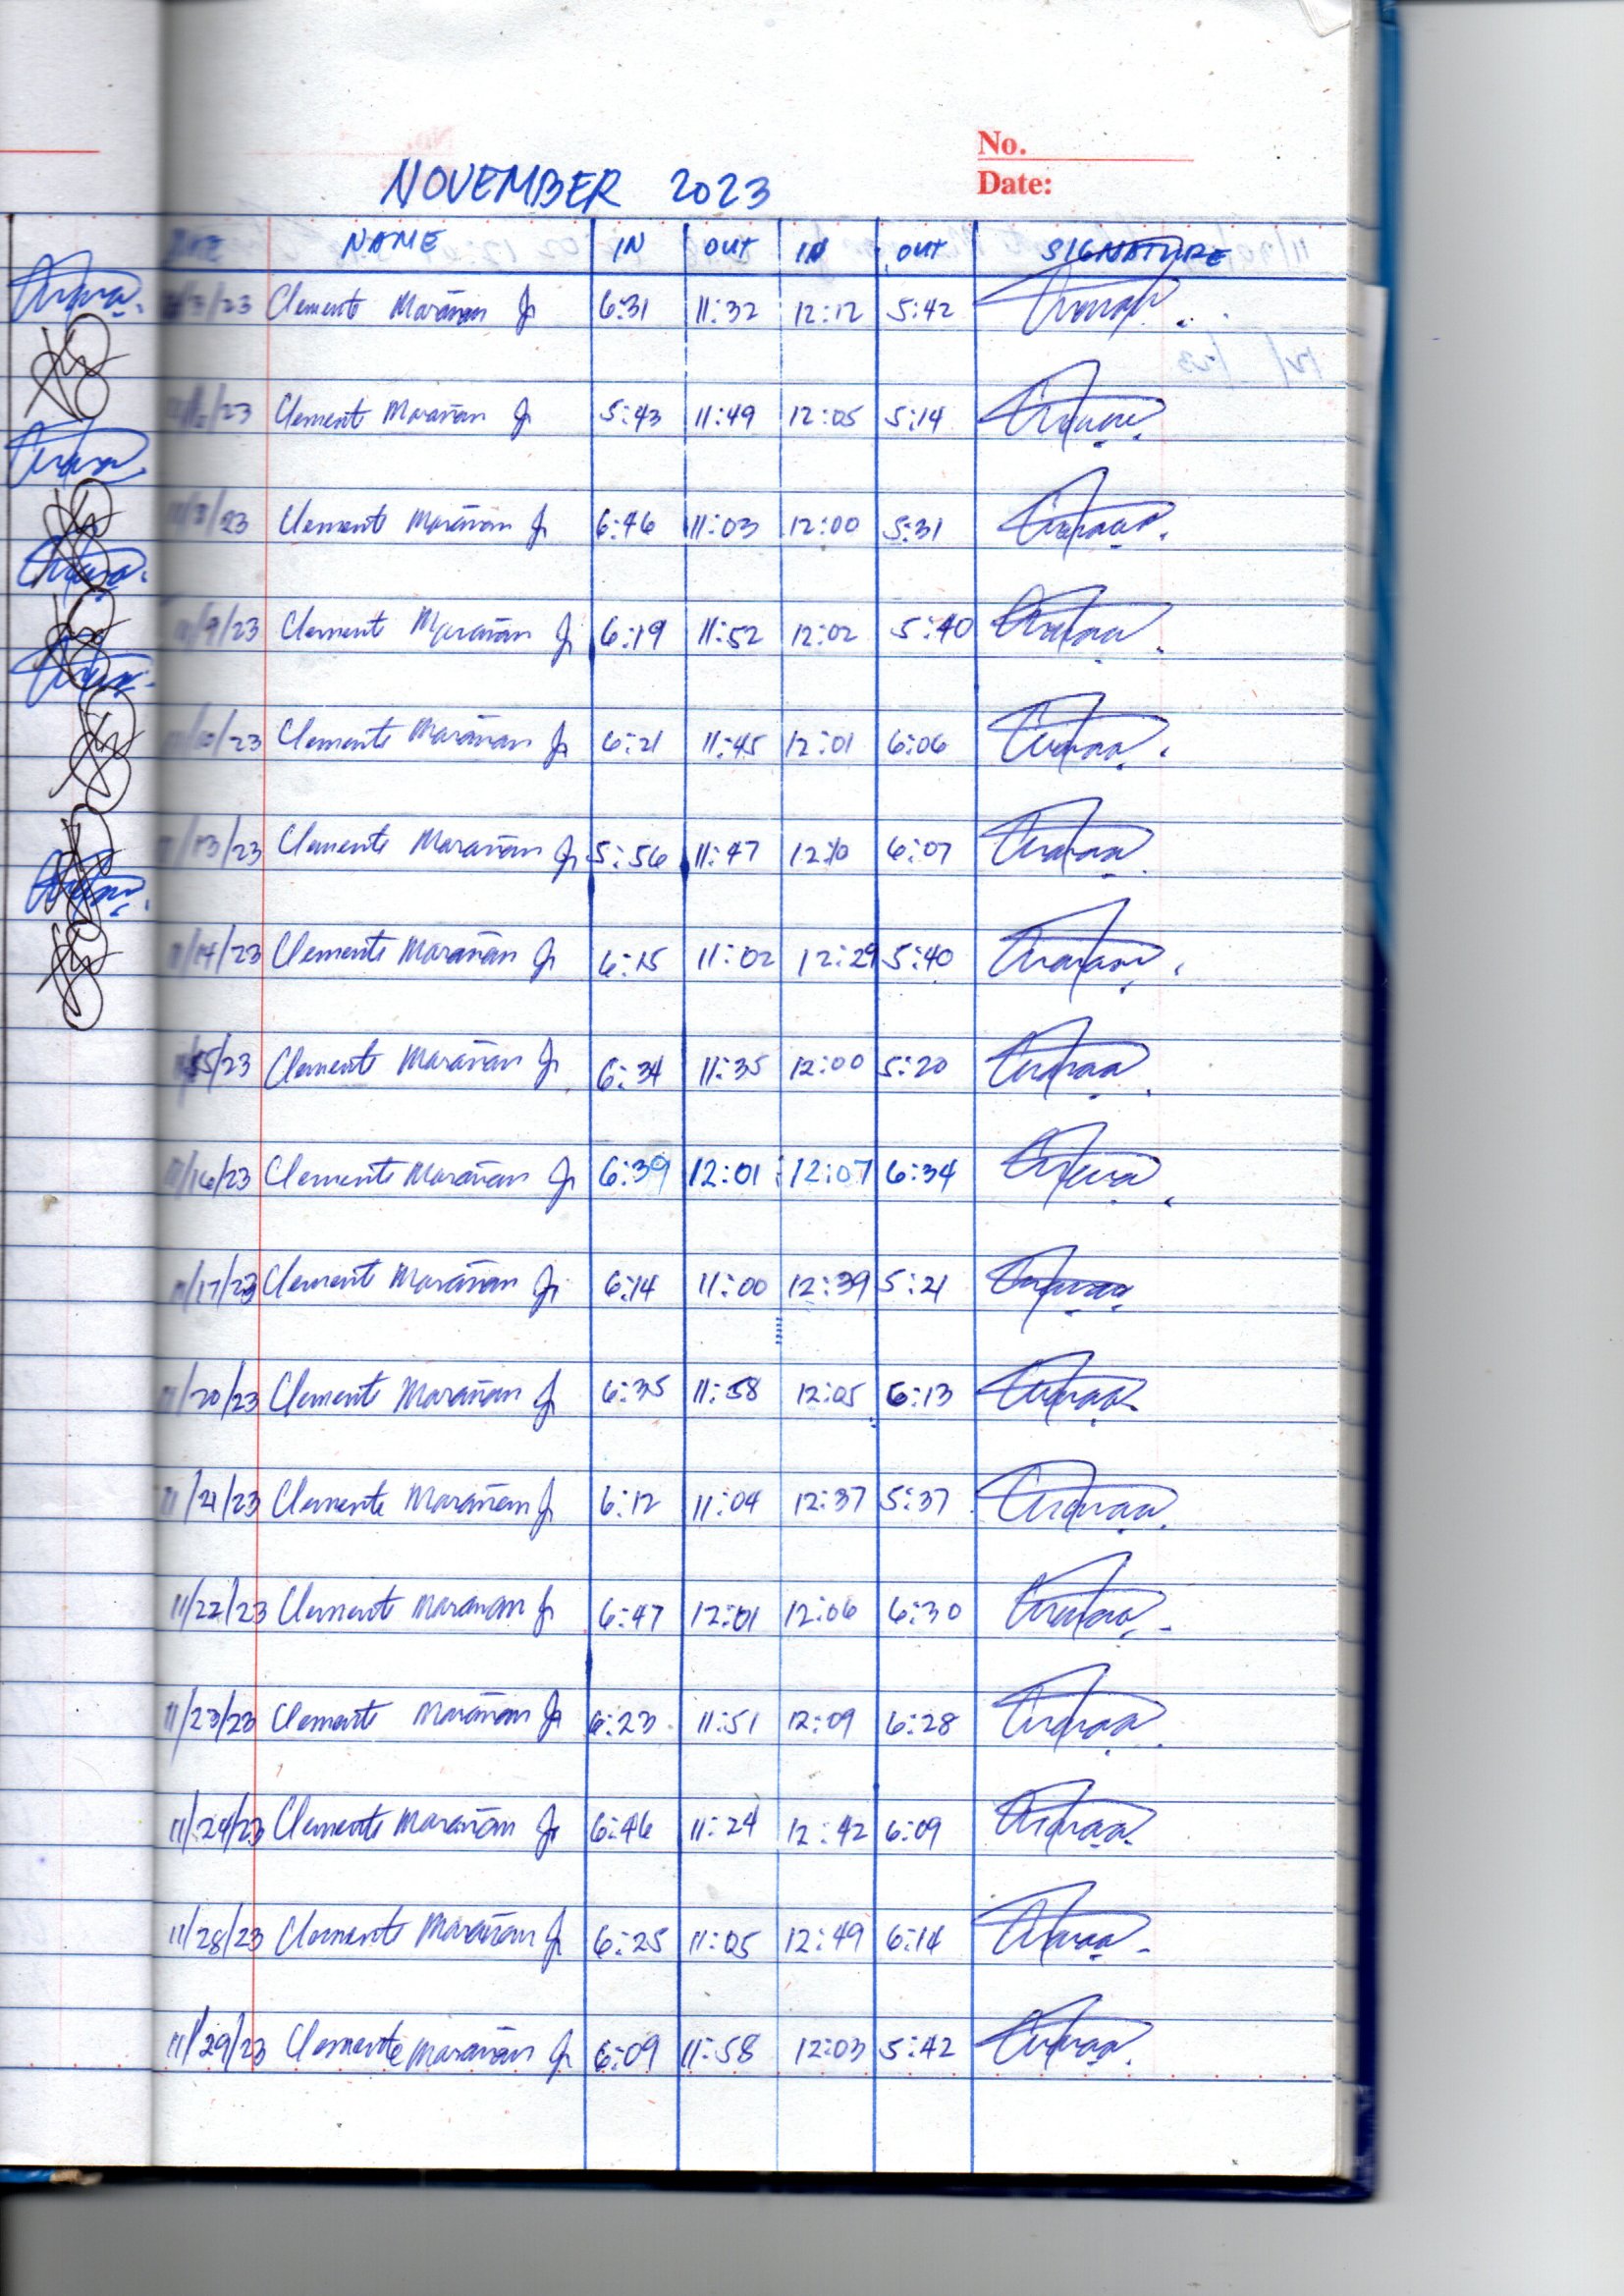 No.
Date:
NOVEMBER 2023
DATE NAME IN OUT IN OUT SIGNATURE
/3/23 Clemente Marañan Jr 6:31 11:32 12:12 5:42
/23 Clemente Marañan Jr 5:43 11:49 12:05 5:14
/23 Clemente Marañan Jr 6:46 11:03 12:00 5:31
/9/23 Clemente Marañan Jr 6:19 11:52 12:02 5:40
/10/23 Clemente Marañan Jr 6:21 11:45 12:01 6:06
/13/23 Clemente Marañan Jr 5:56 11:47 12:10 6:07
11/14/23 Clemente Marañan Jr 6:15 11:02 12:29 5:40
/15/23 Clemente Marañan Jr 6:34 11:35 12:00 5:20
11/16/23 Clemente Marañan Jr 6:39 12:01 12:07 6:34
11/17/23 Clemente Marañan Jr 6:14 11:00 12:39 5:21
11/20/23 Clemente Marañan Jr 6:35 11:58 12:05 6:13
11/21/23 Clemente Marañan Jr 6:12 11:04 12:37 5:37
11/22/23 Clemente Maranan Jr 6:47 12:01 12:06 6:30
11/23/23 Clemente Marañan Jr 6:23 11:51 12:09 6:28
11/24/23 Clemente Marañan Jr 6:46 11:24 12:42 6:09
11/28/23 Clemente Marañan Jr 6:25 11:05 12:49 6:14
11/29/23 Clemente Marañan Jr 6:09 11:58 12:03 5:42